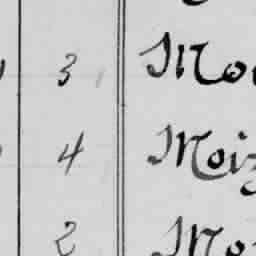 3 Mo
4 Moiz
2 Mo